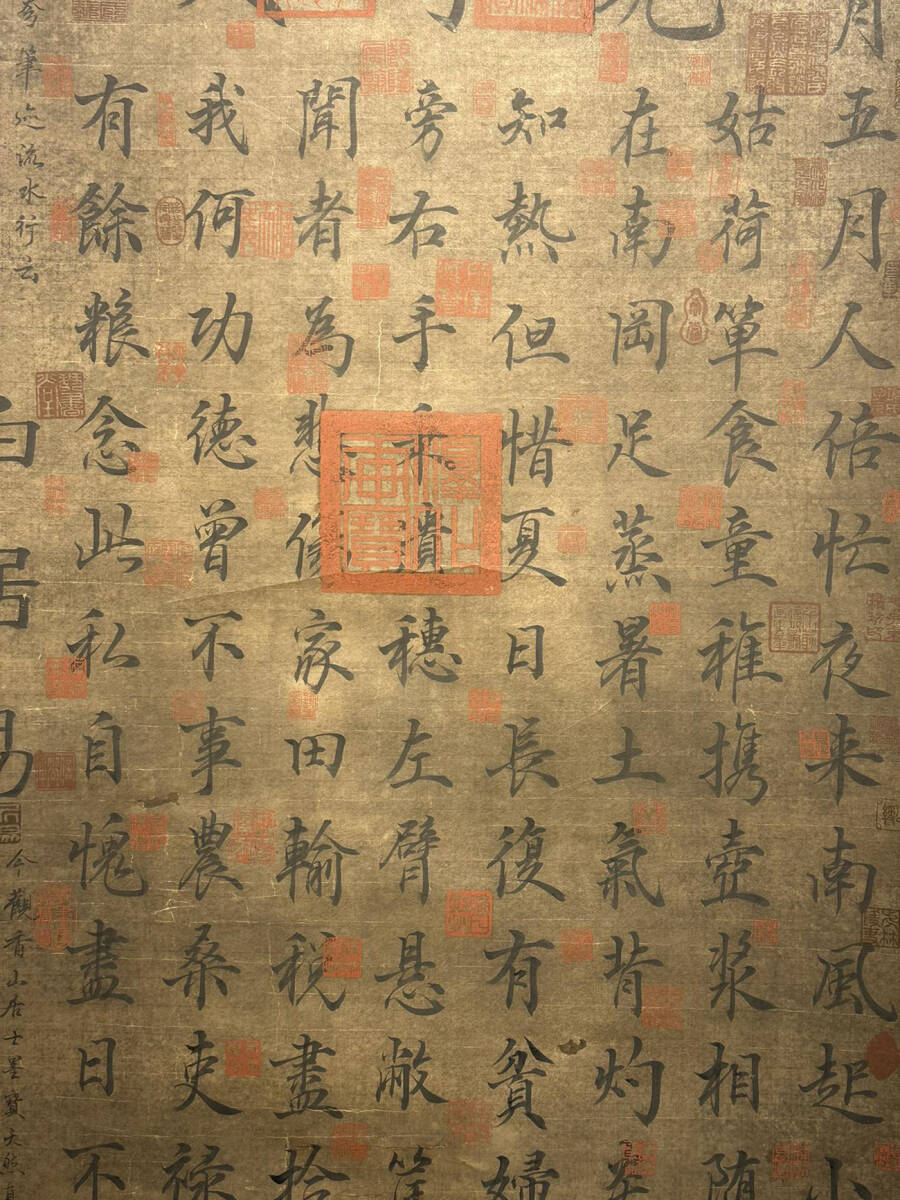 月五月人倍忙夜来南風起小
姑荷箪食童稚携壺漿相随
在南岡足蒸暑土氣背灼
知熱但惜夏日長復有貧婦
旁右手秉遺穗左臂悬敝筐
聞者為悲傷家田輸税盡拾
我何功德曾不事農桑吏禄
有餘粮念此私自愧盡日不
筆迹流水行云
今觀香山居士墨寶天然
白居易